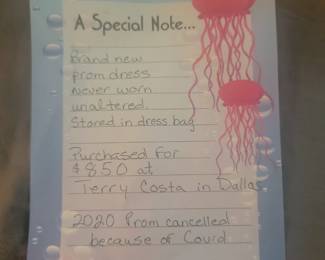 A Special Note...
Brand new
prom dress
never worn
unaltered.
Stored in dress bag
Purchased for
$850 at
Terry Costa in Dallas.
2020 Prom cancelled
because of Covid